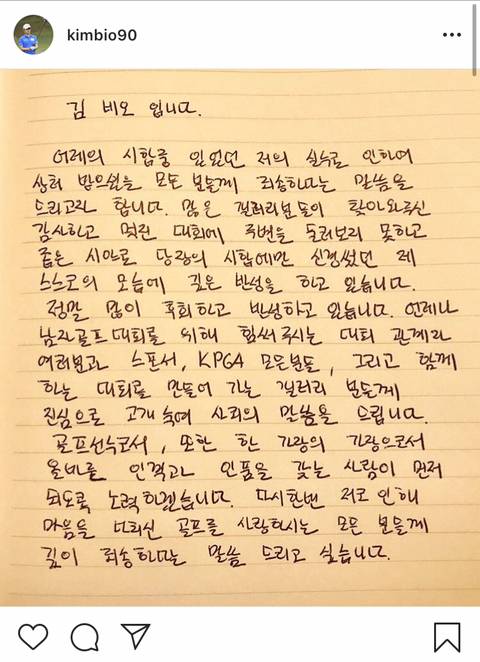 kimbio90
김 비오 입니다.
어제의 시합중 있었던 저의 실수로 인하여
상처 받으셨을 모든 분들께 죄송하다는 말씀을
드리고자 합니다. 많은 갤러리분들이 찾아와주신
감사하고 멋진 대회에 주변을 둘러보지 못하고
좁은 시야로 당장의 시합에만 신경썼던 제
스스로의 모습에 깊은 반성을 하고 있습니다.
정말 많이 후회하고 반성하고 있습니다. 언제나
남자골프 대회를 위해 힘써주시는 대회 관계자
여러분과 스폰서, KPGA 모든분들, 그리고 함께
하는 대회로 만들어 가는 갤러리 분들께
진심으로 고개숙여 사죄의 말씀을 드립니다.
골프선수로서, 또한 한 가장의 가장으로서
올바른 인격과 인품을 갖는 사람이 먼저
되도록 노력하겠습니다. 다시한번 저로 인해
마음을 다치신 골프를 사랑하시는 모든 분들께
깊이 죄송하다는 말씀 드리고 싶습니다.